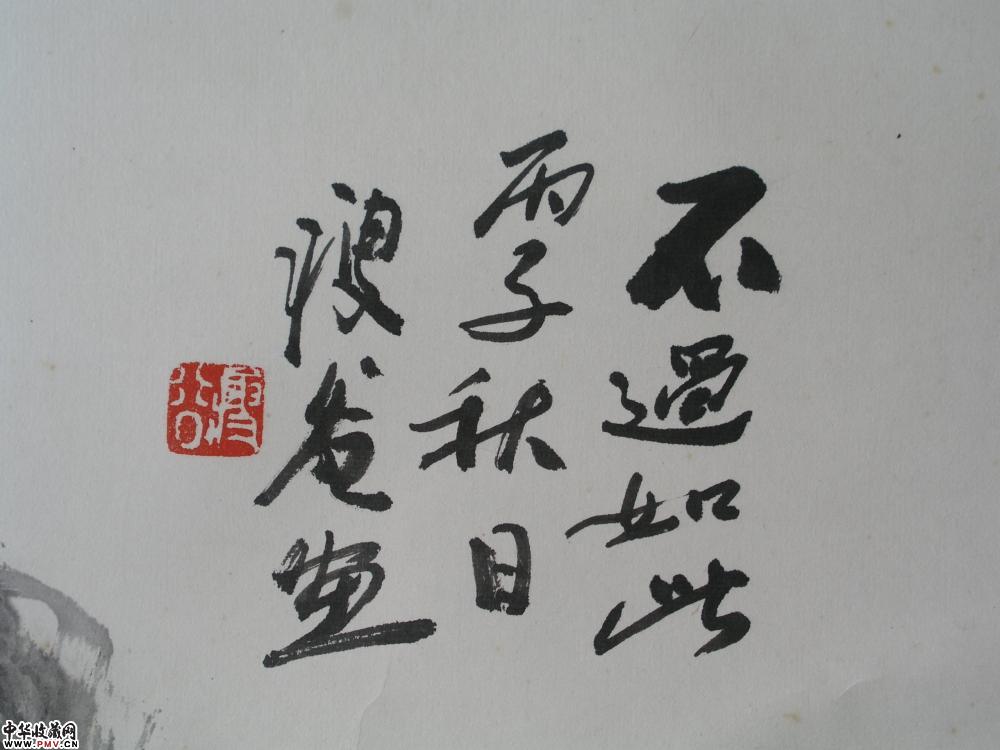 不過如此
丙子秋日
瘦画
中华收藏网
WWW.PMV.CN